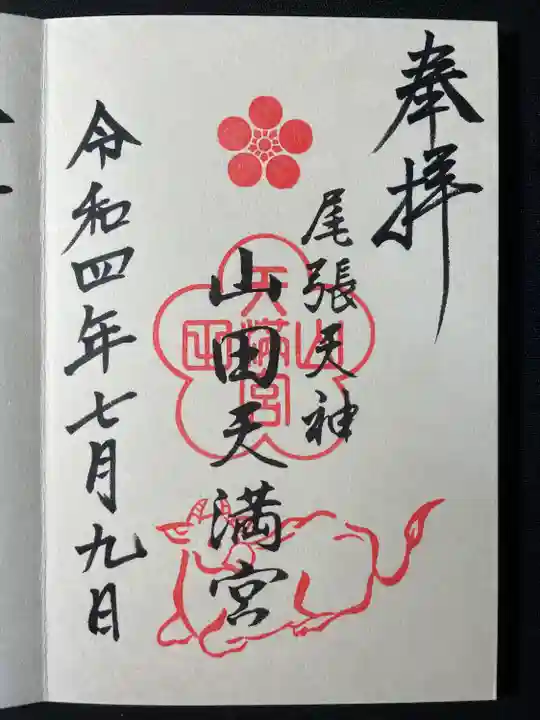 奉拝
尾張天神
山田天満宮
山田
天満宮
令和四年七月九日